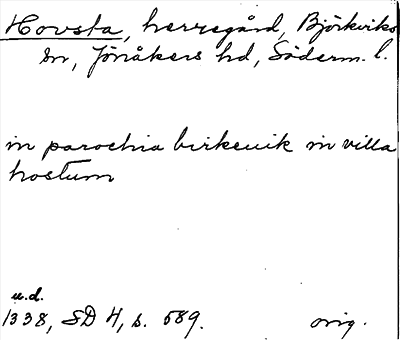 Hovsta, herregård, Björkviks
sn, Jönåkers hd, Söderm. l.
in parochia birkeuik in villa
hostum
u.d.
1338, SD 4, s. 589.
orig.